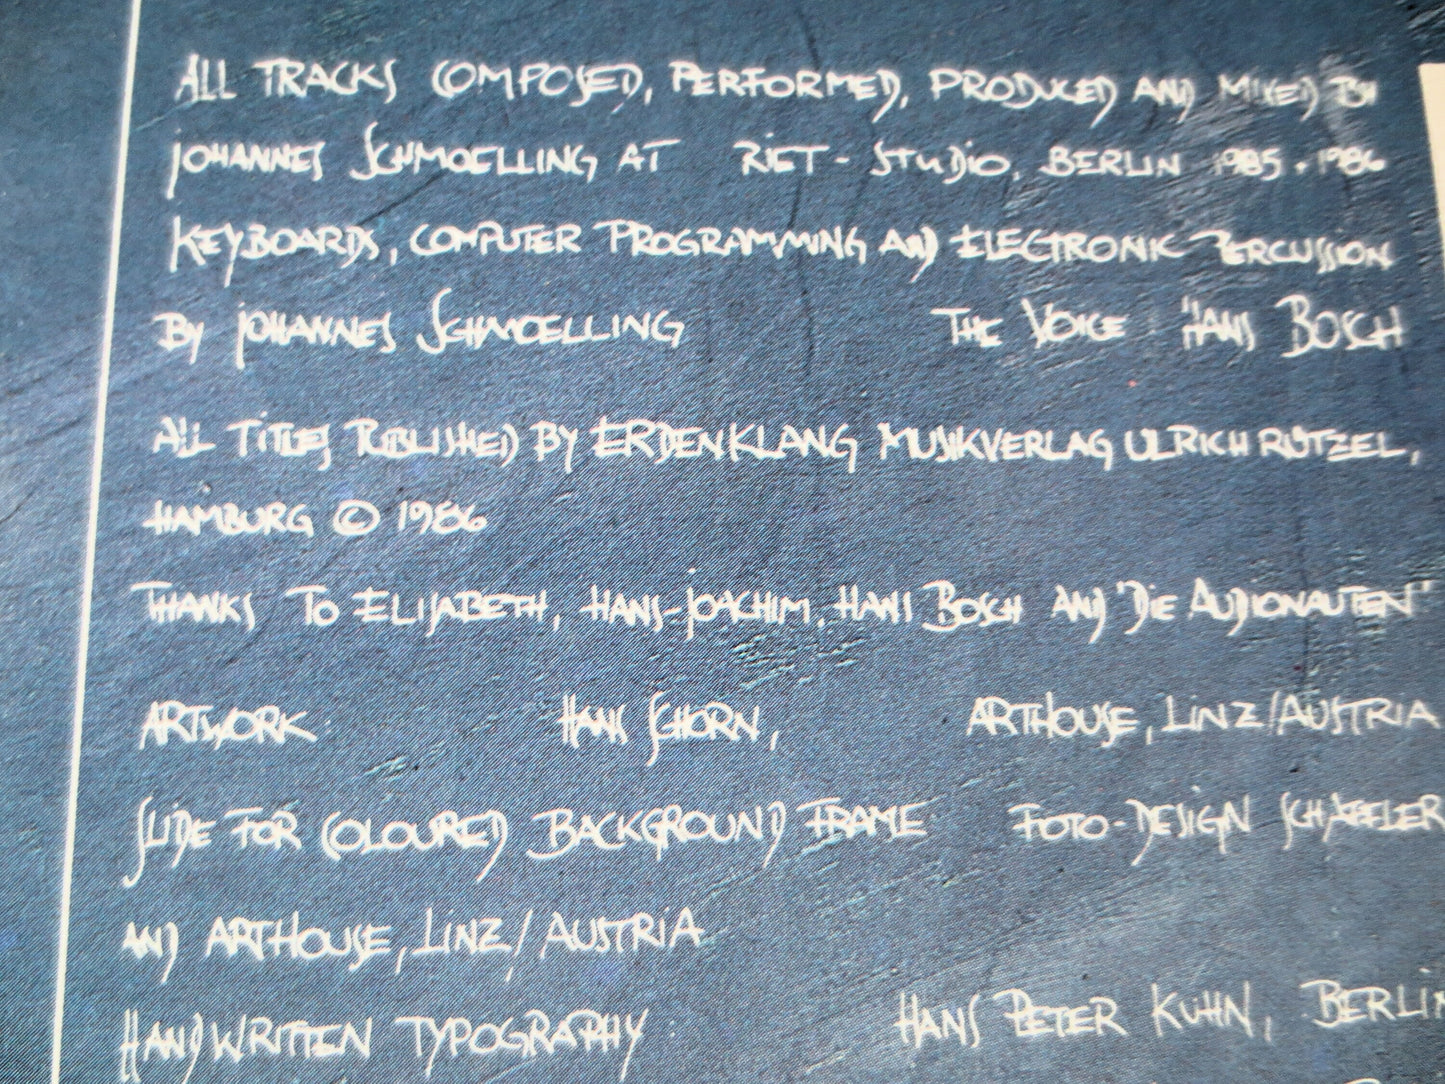 ALL TRACKS COMPOSED, PERFORMED, PRODUCED AND MIXED BY
JOHANNES SCHMOELLING AT RIET-STUDIO, BERLIN 1985 + 1986
KEYBOARDS, COMPUTER PROGRAMMING AND ELECTRONIC PERCUSSION
BY JOHANNES SCHMOELLING THE VOICE : HANS BOSCH
ALL TITLES PUBLISHED BY ERDENKLANG MUSIKVERLAG ULRICH RÜTZEL,
HAMBURG © 1986
THANKS TO ELISABETH, HANS-JOACHIM, HANS BOSCH AND "DIE AUDIONAUTEN"
ARTWORK HANS SCHORN, ARTHOUSE, LINZ/AUSTRIA
SLIDE FOR COLOURED BACKGROUND FRAME FOTO-DESIGN SCHÄFFLER
AND ARTHOUSE, LINZ/AUSTRIA
HANDWRITTEN TYPOGRAPHY HANS PETER KUHN, BERLIN